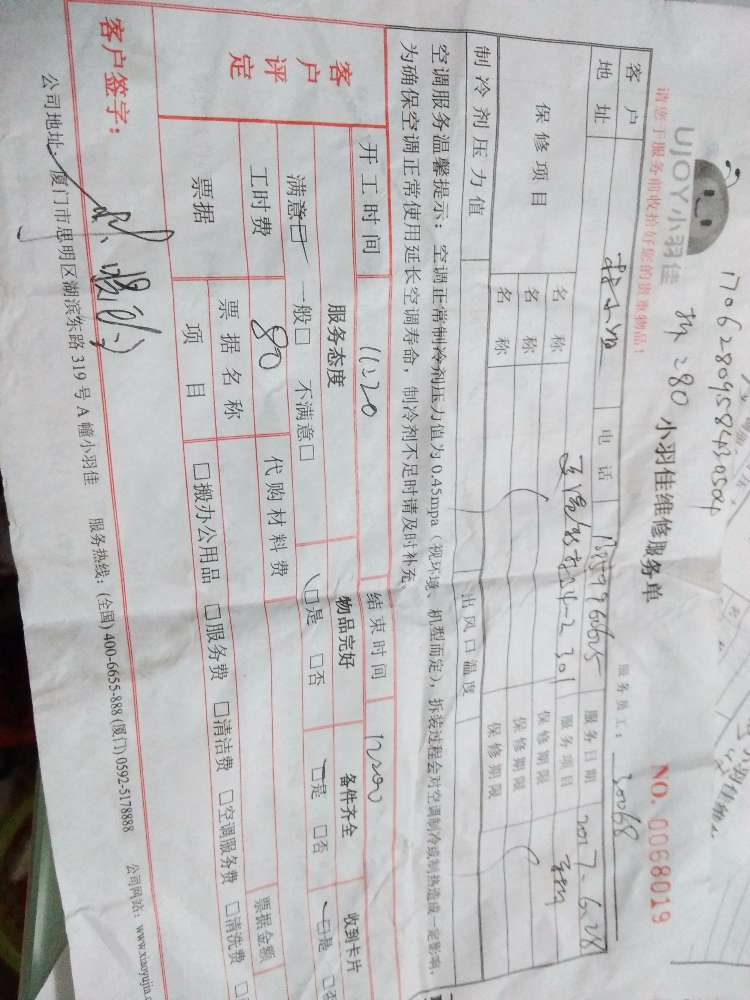 17062809584430504
UJOY小羽佳
小羽佳维修服务单
NO. 0068019
请您于服务前收拾好您的贵重物品!
服务员工: 30068
客户
电话
服务日期 2017.6.28
地址
服务项目
保修项目
名称
保修期限
名称
保修期限
名称
保修期限
制冷剂压力值
出风口温度
空调服务温馨提示:空调正常制冷剂压力值为0.45mpa(视环境、机型而定),拆装过程会对空调制冷或制热造成一定影响,
为确保空调正常使用延长空调寿命,制冷剂不足时请及时补充。
客户评定
开工时间 11:20
结束时间 12:00
服务态度
物品完好
备件齐全
收到卡片
满意☑ 一般□ 不满意□
☑是 □否
☑是 □否
☑是
工时费 80
代购材料费
票据
票据名称
票据金额
项目
□搬办公用品 □服务费 □清洁费 □空调服务费 □清洗费
客户签字:
公司地址:厦门市思明区湖滨东路319号A幢小羽佳 服务热线:(全国)400-6655-888(厦门)0592-5178888 公司网站:www.xiaoyujia.